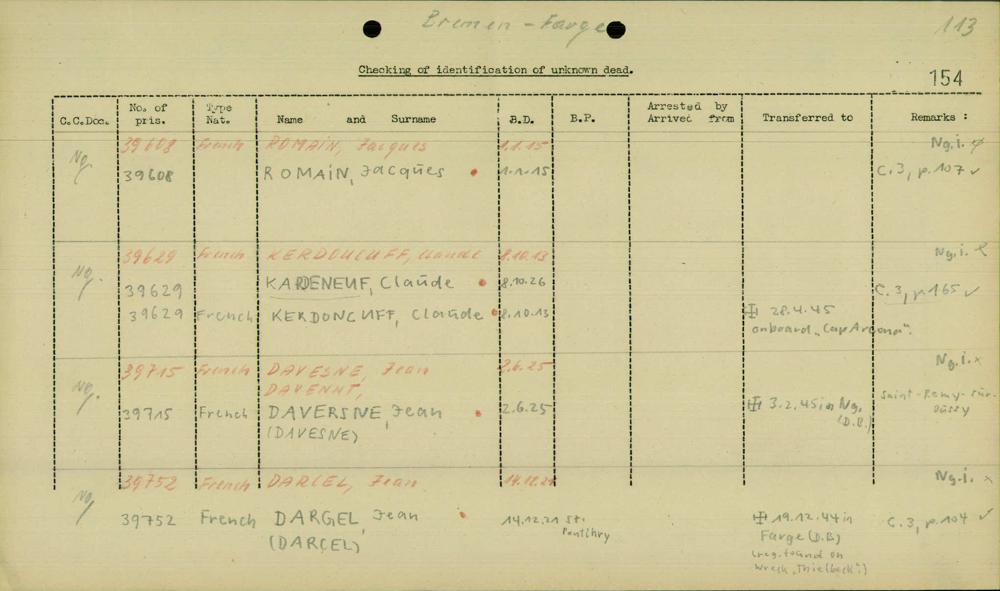 Bremen - Farge
113
Checking of identification of unknown dead.
154
C.C.Doc. No. of pris. Type Nat. Name and Surname B.D. B.P. Arrested by Arrived from Transferred to Remarks :
Ng. 39608 French ROMAIN, Jacques 1.1.15 Ng.i.
39608 ROMAIN, Jacques 1.1.15 C.3, p.107 ✓
Ng. 39629 French KERDONCUFF, Claude 8.10.13 Ng.i.
39629 KARDENEUF, Claude 8.10.26 C.3, p.165 ✓
39629 French KERDONCUFF, Claude 8.10.13 28.4.45
onboard „Cap Arcona".
Ng. 39715 French DAVESNE, Jean 2.6.25 Ng.i. x
DAVENNT,
39715 French DAVERSNE, Jean 2.6.25 3.2.45 in Ng. Saint-Remy-sur-
(DAVESNE) (D.B.)
Ng. 39752 French DARCEL, Jean 14.12.21 Ng.i. x
39752 French DARGEL, Jean 14.12.21 St. 19.12.44 in C.3, p.104 ✓
(DARCEL) Farge (D.B.)
(reg. found on
wreck „Thielbeck")